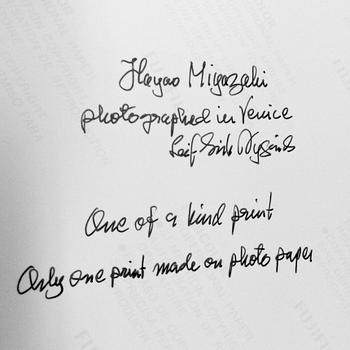 Hayao Miyazaki
photographed in Venice
Leif Erik Nygårds
One of a kind print
Only one print made on photo paper